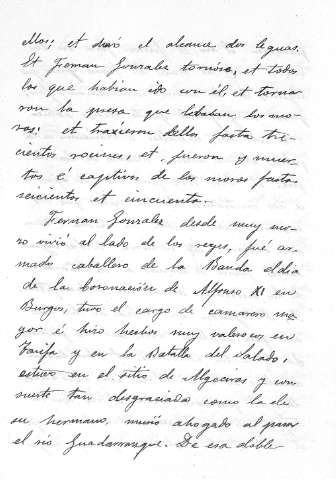 ellos; et duró el alcance dos leguas.
Et Fernan Gonzalez tornóse, et todos
los que habian ido con él, et torna-
ron la presa que lebaban los mo-
ros: et traxieron dellos fasta tre-
cientos rocines, et fueron y muer-
tos é captivos de los moros fasta
seicientos et cincuenta.
Fernan Gonzalez desde muy mo-
zo vivió al lado de los reyes, fué ar-
mado caballero de la Banda el dia
de la Coronación de Alfonso XI en
Burgos, tuvo el cargo de camarero ma-
yor é hizo hechos muy valerosos en
Tarifa y en la Batalla del Salado,
estuvo en el sitio de Algeciras y con
suerte tan desgraciada como la de
su hermano, murió ahogado al pasar
el río Guadarranque. De esa doble